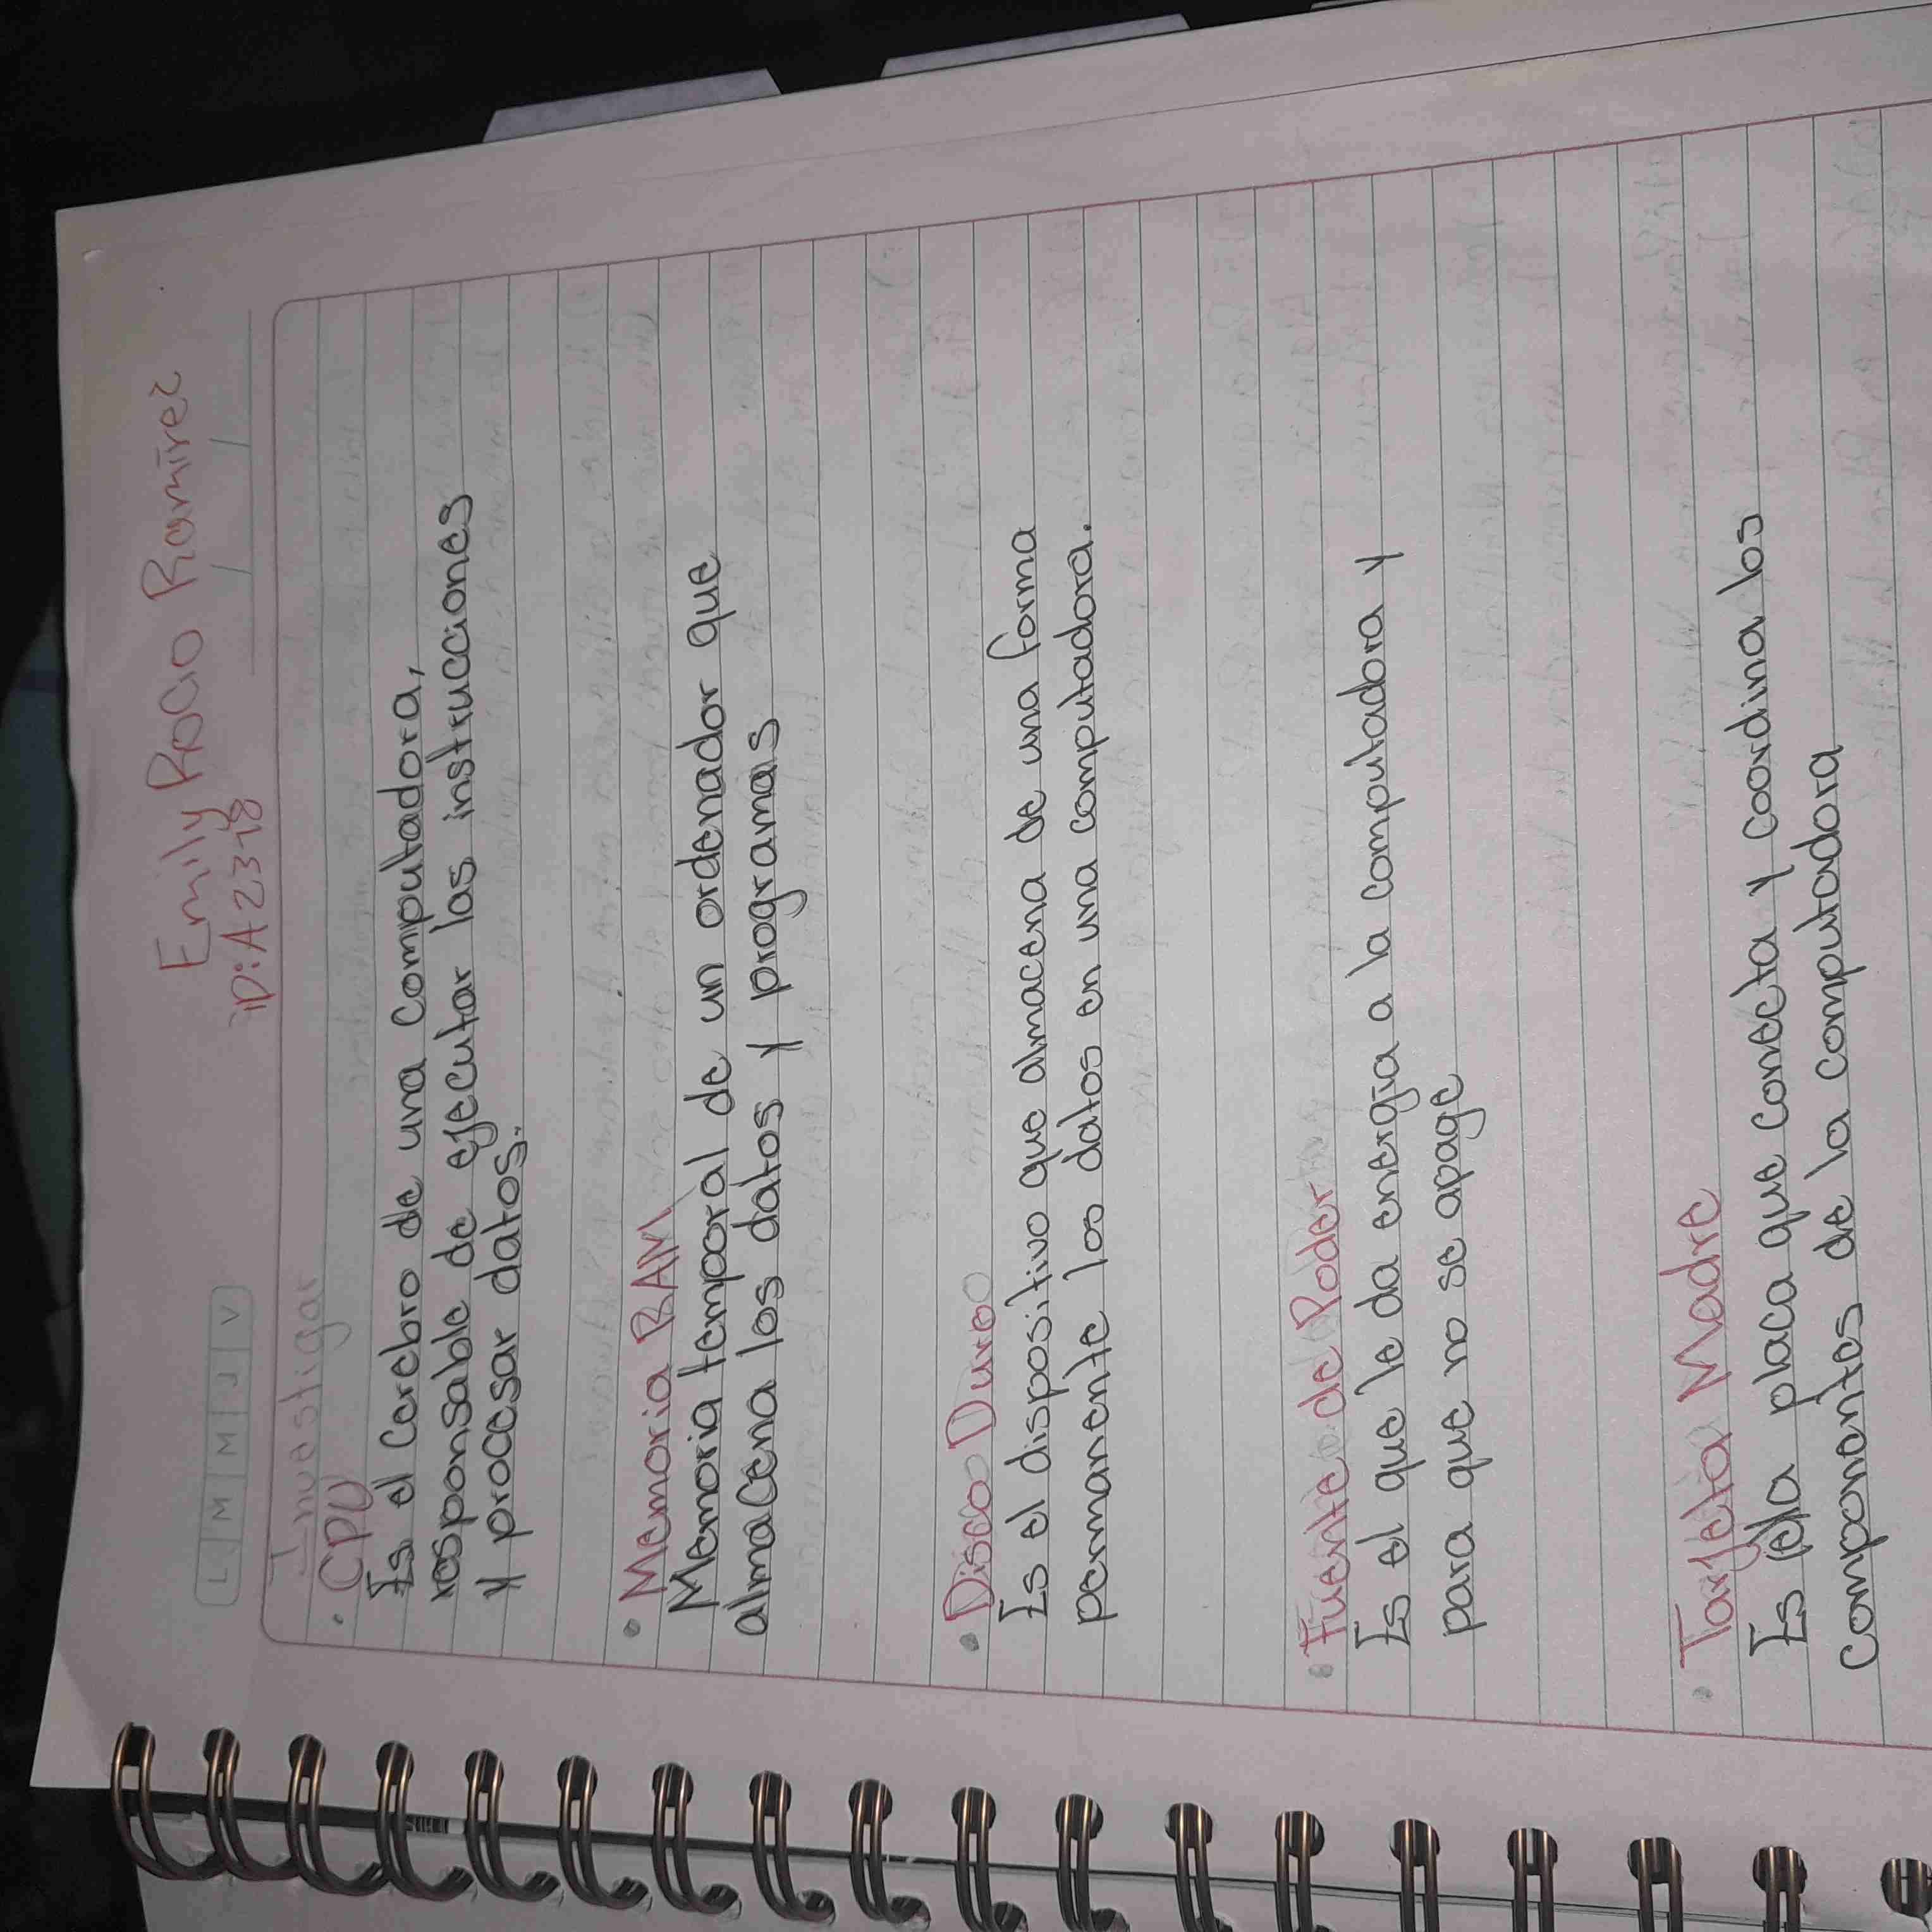 Emily Rocio Ramírez
iD: A2378
L M M J V
Investigar
• CPU
Es el cerebro de una computadora,
responsable de ejecutar las instrucciones
y procesar datos.
• Memoria RAM
Memoria temporal de un ordenador que
almacena los datos y programas
• Disco Duro
Es el dispositivo que almacena de una forma
permanente los datos en una computadora.
• Fuente de Poder
Es el que le da energía a la computadora y
para que no se apage
• Tarjeta Madre
Es la placa que conecta y coordina los
componentes de la computadora